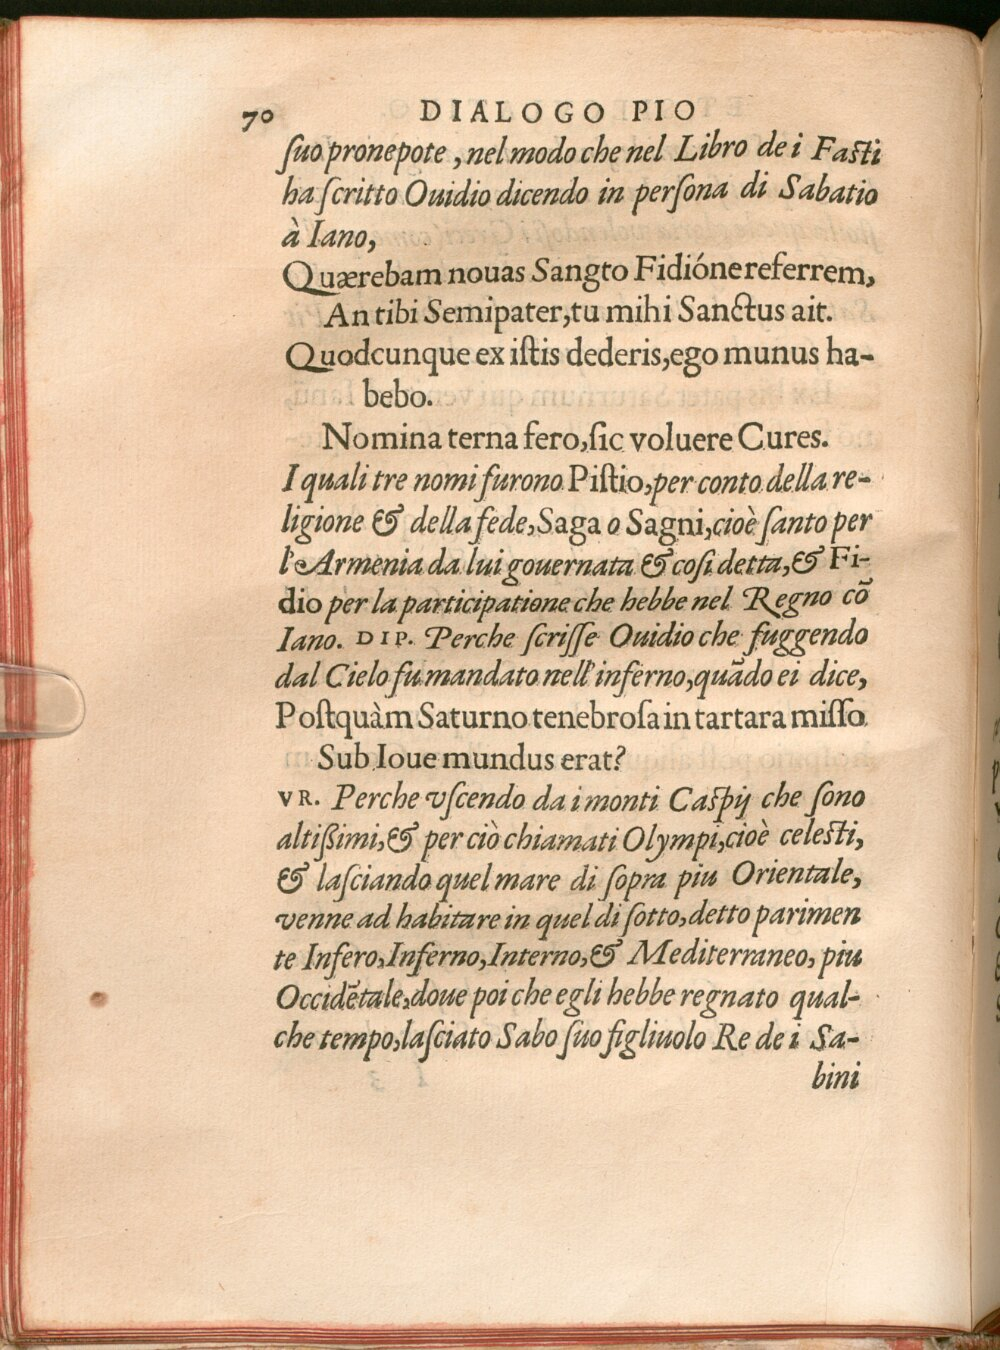 70 DIALOGO PIO
ſuo pronepote, nel modo che nel Libro de i Faſti
ha ſcritto Ouidio dicendo in perſona di Sabatio
à Iano,
Quærebam nouas Sangto Fidióne referrem,
An tibi Semipater, tu mihi Sanctus ait.
Quodcunque ex iſtis dederis, ego munus ha-
bebo.
Nomina terna fero, ſic voluere Cures.
I quali tre nomi furono Piſtio, per conto della re-
ligione & della fede, Saga o Sagni, cioè ſanto per
l'Armenia da lui gouernata & coſi detta, & Fi-
dio per la participatione che hebbe nel Regno cõ
Iano. DIP. Perche ſcriſſe Ouidio che fuggendo
dal Cielo fu mandato nell'inferno, quãdo ei dice,
Poſtquàm Saturno tenebroſa in tartara miſſo
Sub Ioue mundus erat?
VR. Perche vſcendo da i monti Caſpij che ſono
altißimi, & per ciò chiamati Olympi, cioè celeſti,
& laſciando quel mare di ſopra piu Orientale,
venne ad habitare in quel di ſotto, detto parimen
te Infero, Inferno, Interno, & Mediterraneo, piu
Occidẽtale, doue poi che egli hebbe regnato qual-
che tempo, laſciato Sabo ſuo figliuolo Re de i Sa-
bini